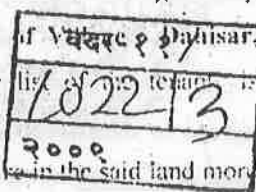 of वदर १ १/ Dahisar,
list of the tenant is
1022 3
२००९
in the said land more